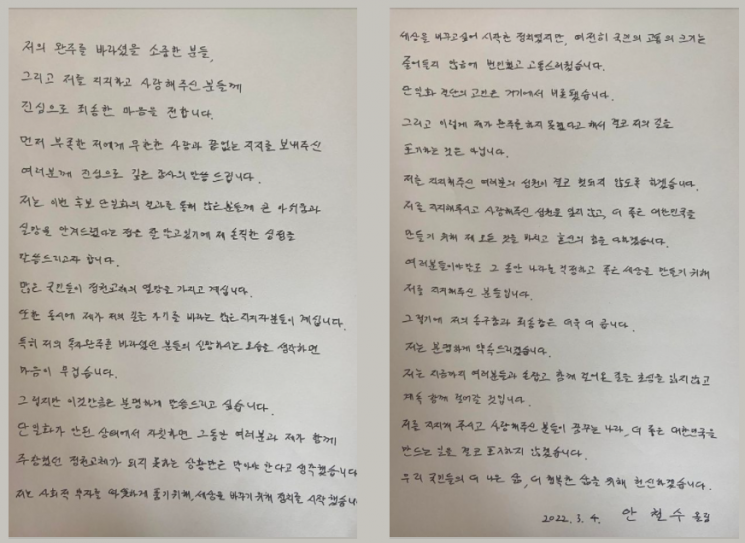 저의 완주를 바라셨을 소중한 분들,
그리고 저를 지지하고 사랑해주신 분들께
진심으로 죄송한 마음을 전합니다.
먼저 부족한 저에게 무한한 사랑과 끝없는 지지를 보내주신
여러분께 진심으로 깊은 감사의 말씀 드립니다.
저는 이번 후보 단일화의 결과를 통해 많은분들께 큰 아쉬움과
실망을 안겨드렸다는 점을 잘 알고 있기에 제 솔직한 심정을
말씀드리고자 합니다.
많은 국민들이 정권교체의 열망을 가지고 계십니다.
또한 동시에 제가 저의 길을 가기를 바라는 많은 지지자분들이 계십니다.
특히 저의 독자완주를 바라셨던 분들의 실망하시는 모습을 생각하면
마음이 무겁습니다.
그렇지만 이것만큼은 분명하게 말씀드리고 싶습니다.
단일화가 안된 상태에서 자칫하면 그동안 여러분과 제가 함께
주장했던 정권교체가 되지 못하는 상황만은 막아야 한다고 생각했습니다
저는 사회적 부자를 따뜻하게 품기 위해, 세상을 바꾸기 위해 정치를 시작했습니
세상을 바꾸고 싶어 시작한 정치였지만, 여전히 국민의 고통의 크기는
줄어들지 않음에 번민했고 고통스러웠습니다.
단일화 결단의 고민은 거기에서 비롯됐습니다.
그리고 이렇게 제가 완주를 하지 못했다고 해서 결코 저의 길을
포기하는 것은 아닙니다.
저를 지지해주신 여러분의 성원이 결코 헛되지 않도록 하겠습니다.
저를 지지해주시고 사랑해주신 성원을 잊지 않고, 더 좋은 대한민국을
만들기 위해 제 모든 것을 바치고 혼신의 힘을 다하겠습니다.
여러분들이야말로 그 동안 나라를 걱정하고 좋은 세상을 만들기 위해
저를 지지해주신 분들입니다.
그렇기에 저의 송구함과 죄송함은 더욱 더 큽니다.
저는 분명하게 약속드리겠습니다.
저는 지금까지 여러분들과 손잡고 함께 걸어온 길을 초심을 잃지않고
계속 함께 걸어갈 것입니다.
저를 지지해 주시고 사랑해주신 분들이 꿈꾸는 나라, 더 좋은 대한민국을
만드는 일을 결코 포기하지 않겠습니다.
우리 국민들의 더 나은 삶, 더 행복한 삶을 위해 헌신하겠습니다.
2022. 3. 4. 안 철 수 올림